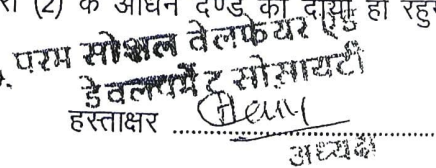 (2) के अधिन दण्ड का दायी हो रहु
परम सोशल वेलफेयर एण्ड
डेवलपमेंट सोसायटी
हस्ताक्षर ..........................
अध्यक्ष